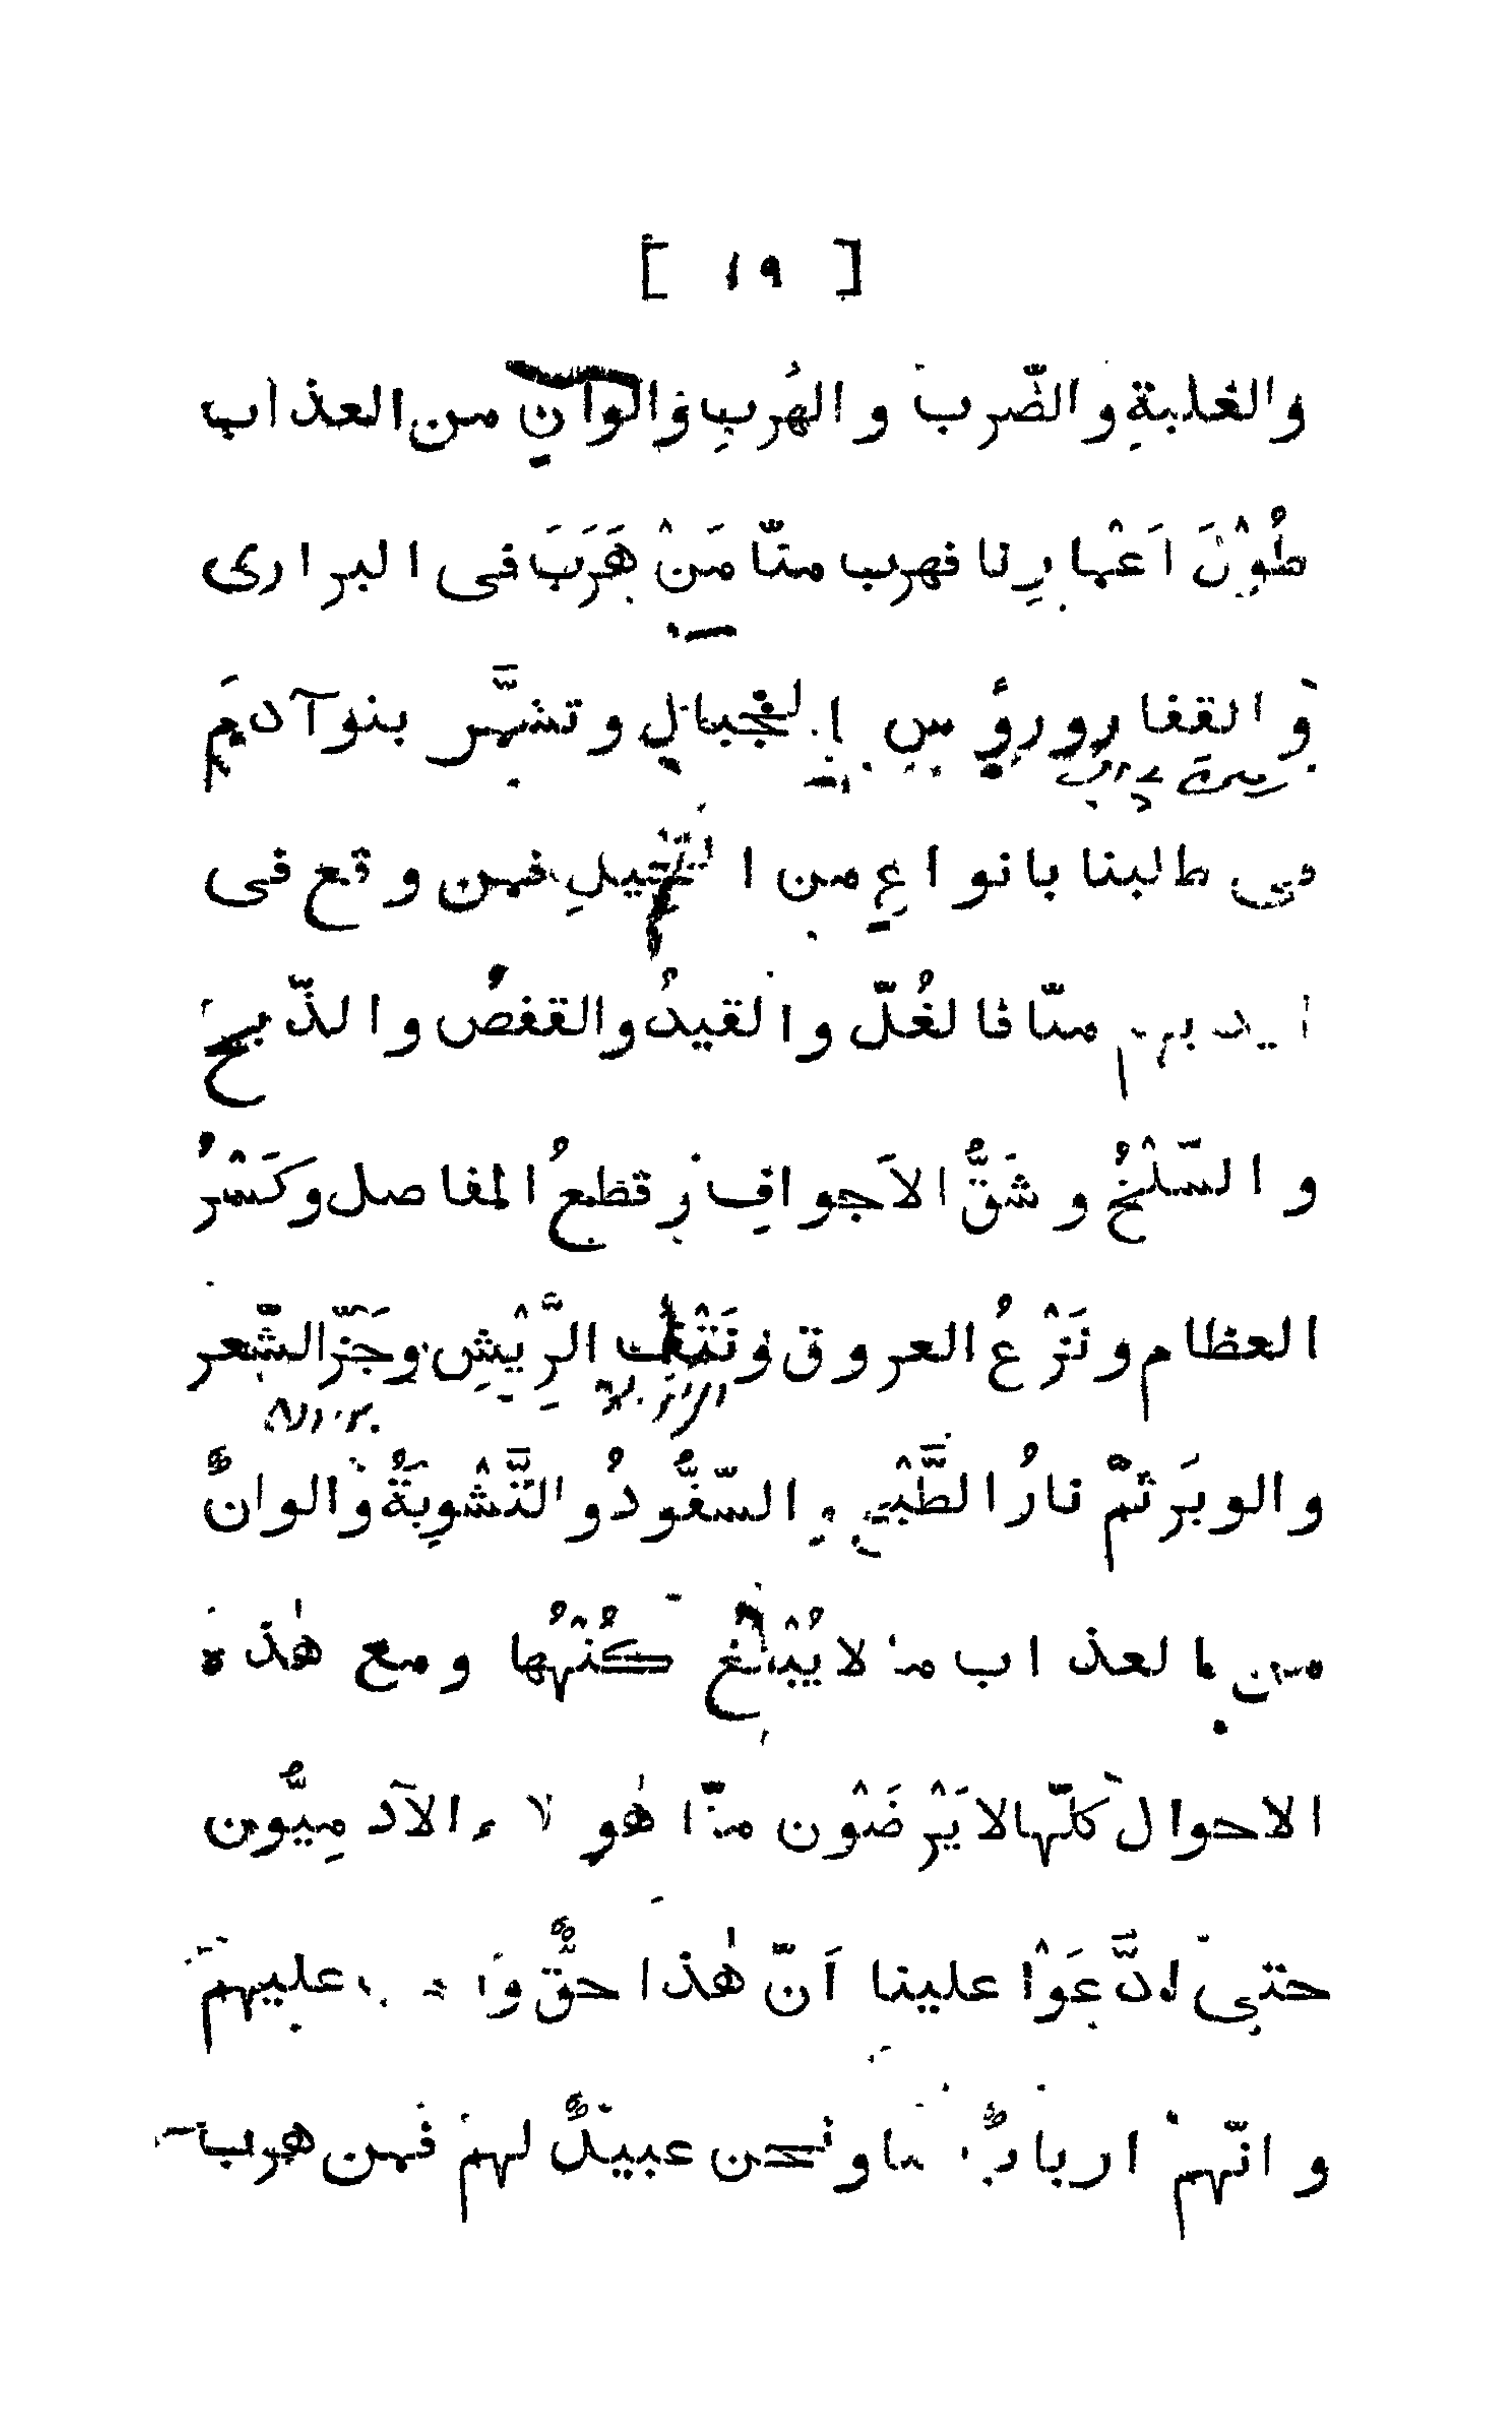 [ ١٩ ]
والغلبةِ والضّرب والهُربِ والوانٍ من العذاب
طُوْلَ اَعْمارِنا فهرب منّا مَنْ هَرَبَ فى البرارى
والقفار ورؤس الجبالِ وتشمَّر بنو آدمَ
فى طالبنا بانواعٍ من الحيلِ فمن وقع فى
ايديهم منّا فالغُلّ والقيدُ والقفصُ والذّبحُ
والسّلْخُ وشَقُّ الاَجوافِ وقطعُ المفاصل وكَسْرُ
العظام ونَزْعُ العروق ونَتْفُ الرِّيْشِ وجَزّ الشّعر
والوبَر ثمّ نارُ الطَّبْخِ والسّفُّودُ والتَّشْوِيَةُ والوانٌ
من العذاب ما لا يُبْلَغ كُنْهُها ومع هٰذه
الاحوال كلّها لا يَرْضَوْن منّا هٰولاء الآدمِيُّون
حتى ادَّعَوْا علينا اَنّ هٰذا حقٌّ عليهم
وانّهم اربابٌ ونحن عبيدٌ لهم فمن هرب